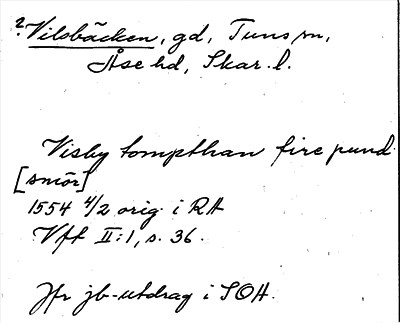 ? Vilsbäcken, gd, Tuns sn,
Åse hd, Skar. l.
Visby tompthan fire pund
[smör]
1554 4/2 orig. i RA
Vft II:1, s. 36.
Jfr jb-utdrag i SOH.